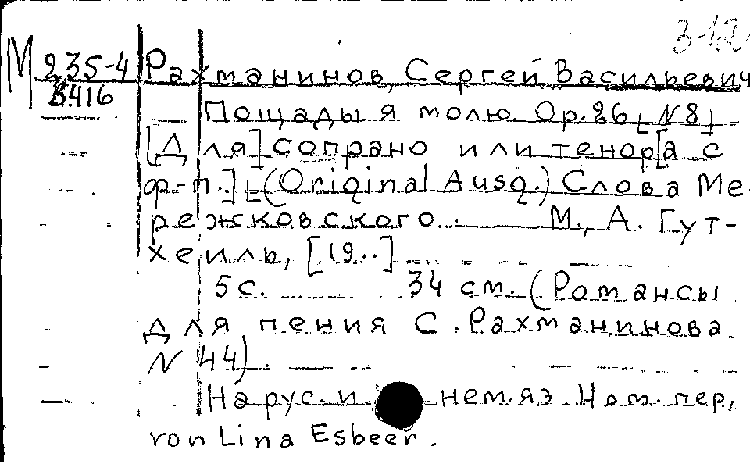 3-42
М 235-4 Рахманинов, Сергей Васильевич
8416
Пощады я молю. Op. 26, N 8,
[Для] сопрано или тенор[а с
ф-п.] (Original Ausg.) Слова Ме-
режковского. М., А. Гут-
хейль, [19..]
5 с. 34 см. (Романсы
для пения С. Рахманинова
N 44).
На рус. и нем. яз. Нем. пер.
von Lina Esbeer.